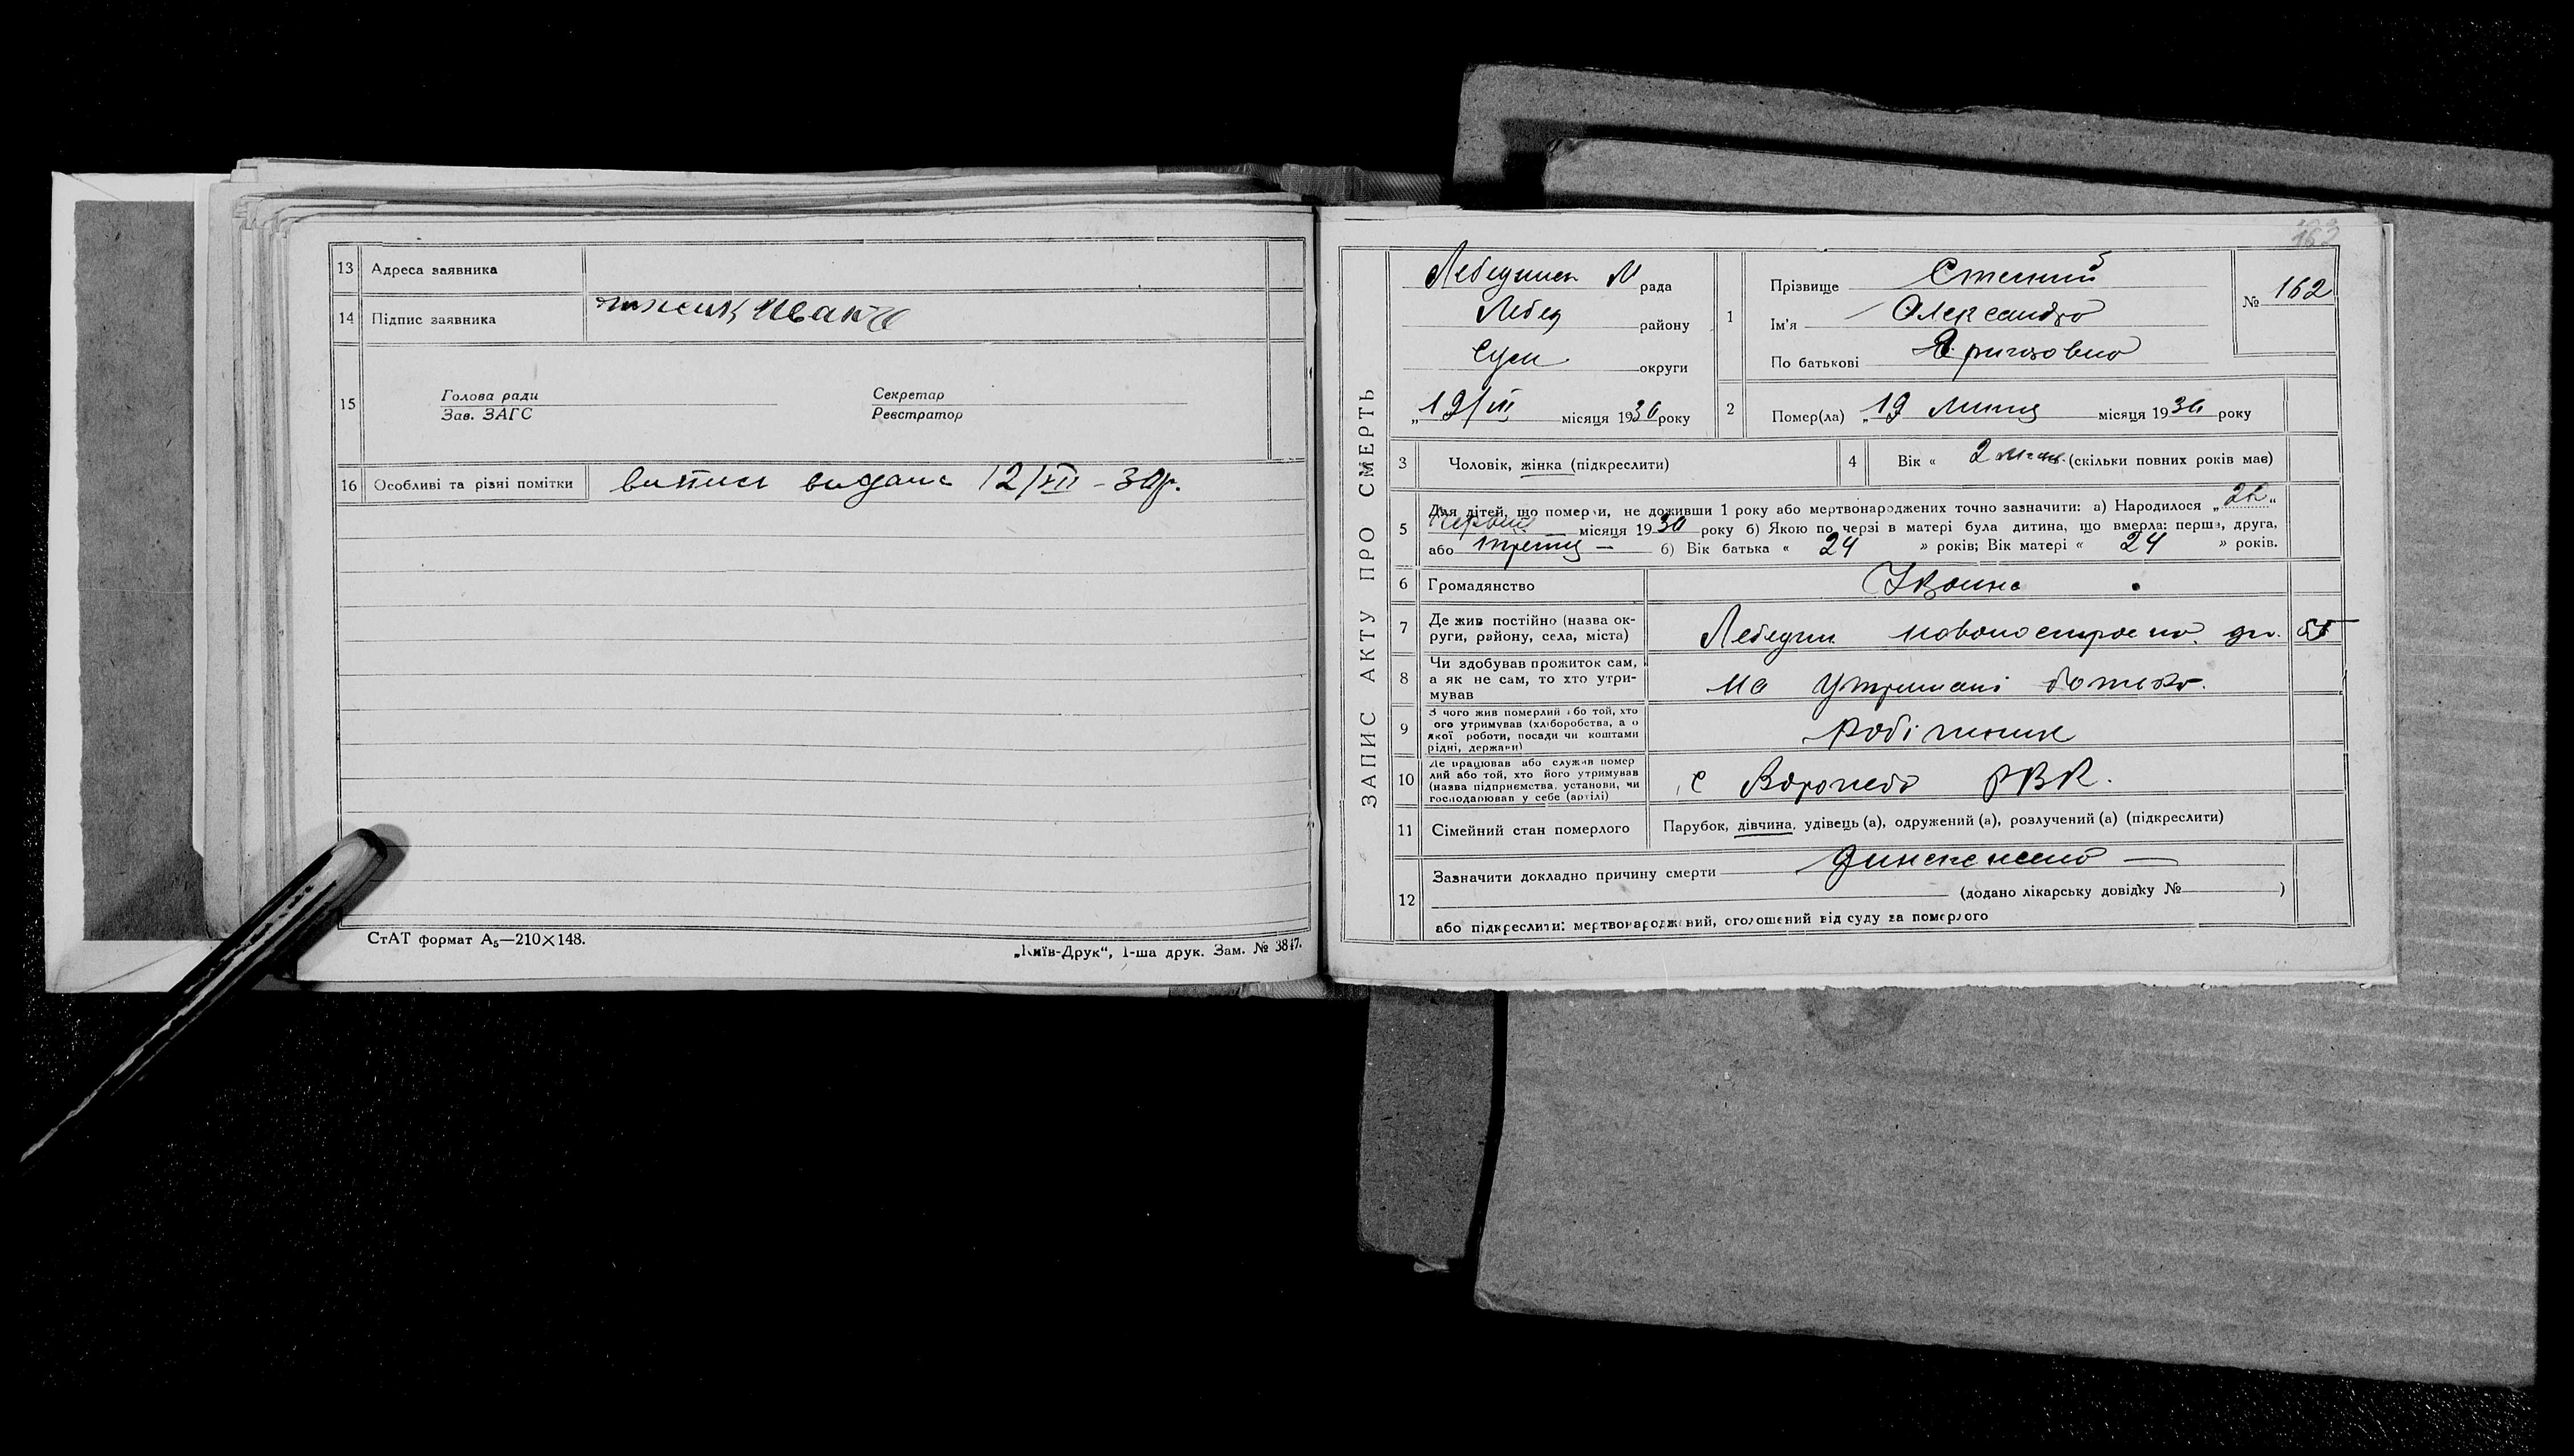 13 Адреса заявника
14 Підпис заявника
15 Голова ради Секретар
Зав. ЗАГС Реєстратор
16 Особливі та різні помітки випись видана 12/XII - 30 р.
СтАТ формат А5—210×148.
„Київ-Друк“, 1-ша друк. Зам. № 3847.
163
ЗАПИС АКТУ ПРО СМЕРТЬ
рада
Лебед району
Суми округи
„ 19/VII місяця 1930 року
1 Прізвище
Ім'я Олександра
По батькові
№ 162
2 Помер(ла) „ 19 Липня місяця 1930 року
3 Чоловік, жінка (підкреслити)
4 Вік « 2 (скільки повних років має)
5 Для дітей, що померли, не доживши 1 року або мертвонароджених точно зазначити: а) Народилося „ “
місяця 1930 року б) Якою по черзі в матері була дитина, що вмерла: перша, друга,
або третя — б) Вік батька « 24 » років; Вік матері « 24 » років.
6 Громадянство
7 Де жив постійно (назва ок-
руги, району, села, міста) Лебедин
8 Чи здобував прожиток сам,
а як не сам, то хто утри-
мував На утримані батька.
9 З чого жив померлий або той, хто
його утримував (хліборобства, або
якої роботи, посади чи коштами
рідні, держави) Робітник
10 Де працював або служив помер
лий або той, хто його утримував
(назва підприємства, установи, чи
господарював у себе (артілі) РВК.
11 Сімейний стан померлого Парубок, дівчина, удівець (а), одружений (а), розлучений (а) (підкреслити)
12 Зазначити докладно причину смерти
(додано лікарську довідку № )
або підкреслити: мертвонароджений, оголошений від суду за померлого